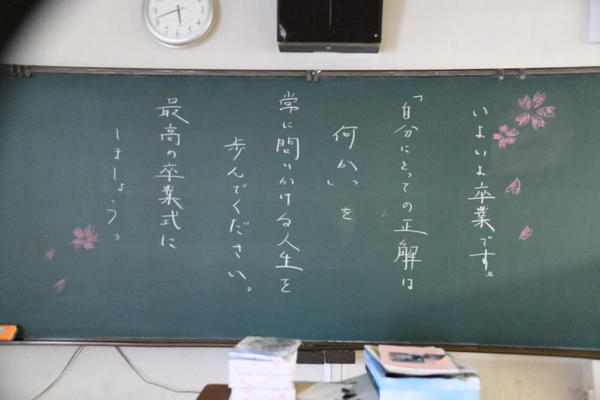 いよいよ卒業です。
「自分にとっての正解は
何か」を
常に問いかける人生を
歩んでください。
最高の卒業式に
しましょう。